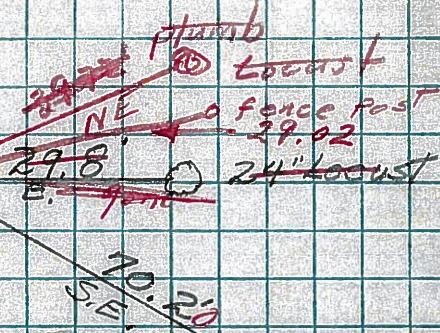 plumb
Locust
N.E.
fence post
29.02
29.8
24" Locust
E.
fence
70.20
S.E.